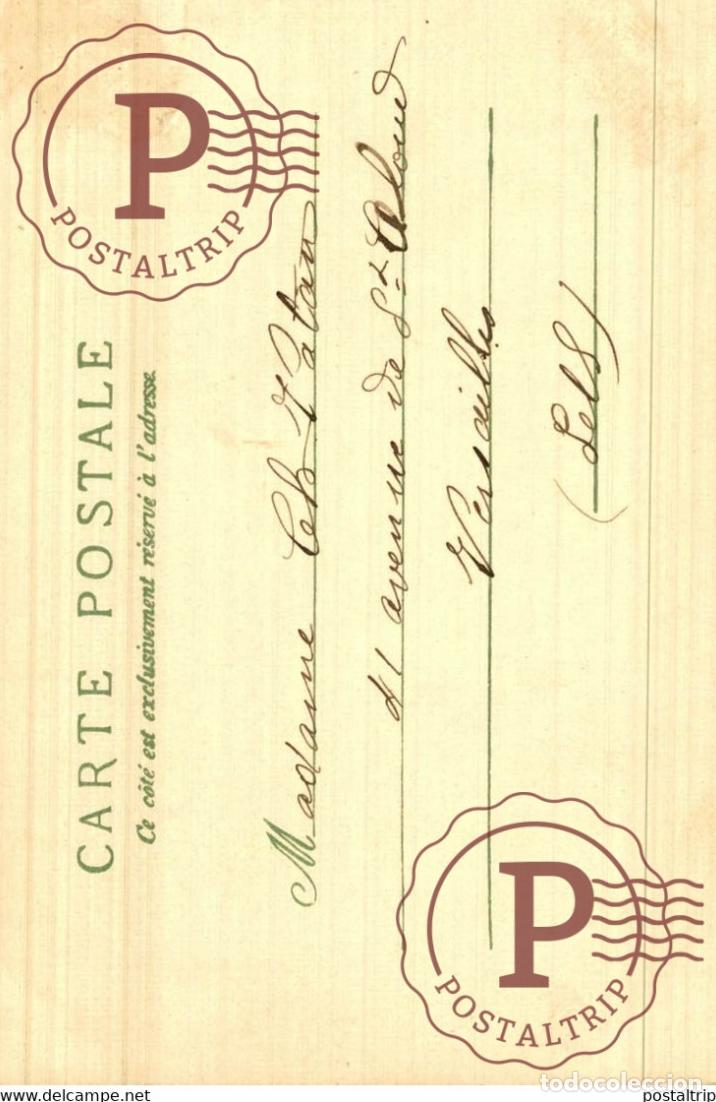 CARTE POSTALE
Ce côté est exclusivement réservé à l'adresse.
Madame Ch
avenue de St Cloud
Versailles
P
POSTALTRIP
P
POSTALTRIP
todocoleccion
www.delcampe.net
postaltrip